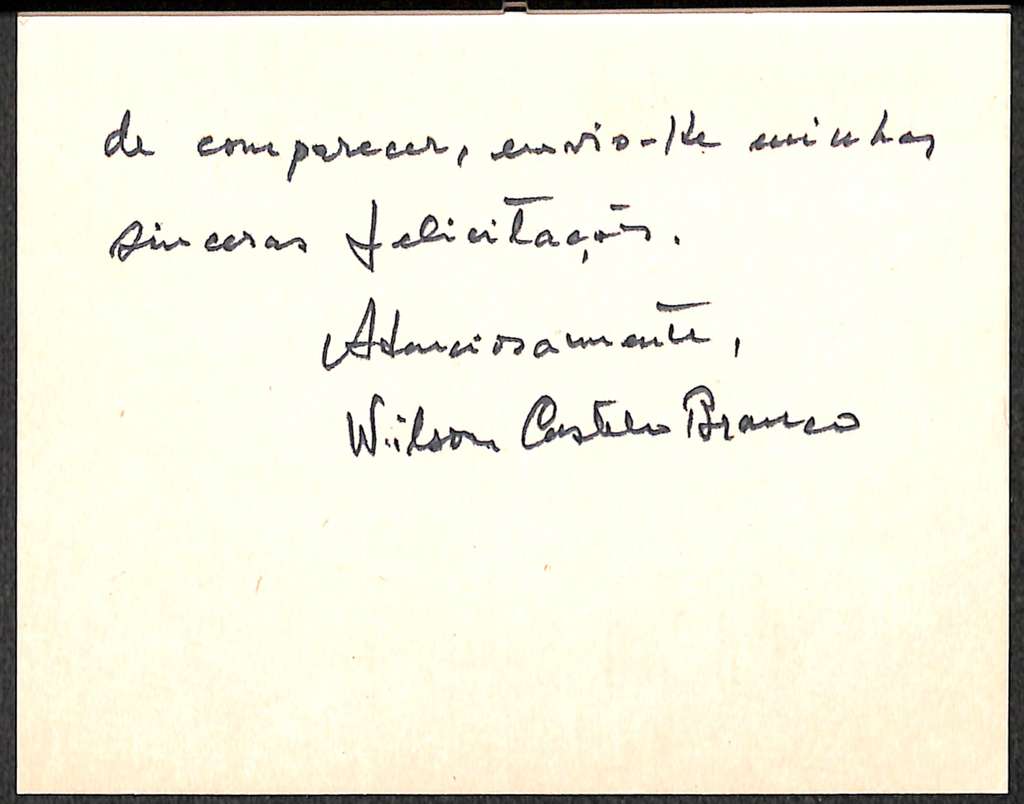 de comparecer, envio-lhe minhas
sinceras felicitações.
Atenciosamente,
Wilson Castelo Branco